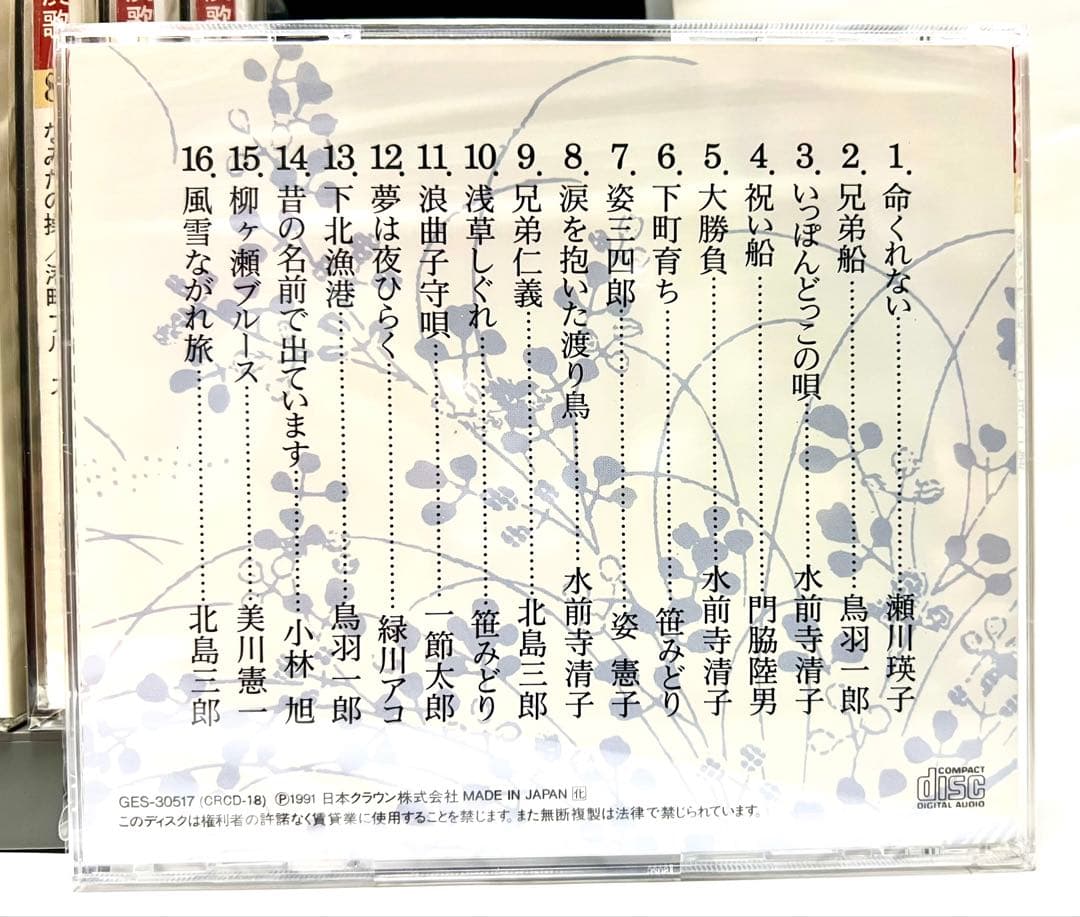 1. 命くれない………瀬川瑛子
2. 兄弟船………鳥羽一郎
3. いっぽんどっこの唄………水前寺清子
4. 祝い船………門脇陸男
5. 大勝負………水前寺清子
6. 下町育ち………笹みどり
7. 姿三四郎………姿 憲子
8. 涙を抱いた渡り鳥………水前寺清子
9. 兄弟仁義………北島三郎
10. 浅草しぐれ………笹みどり
11. 浪曲子守唄………一節太郎
12. 夢は夜ひらく………緑川アコ
13. 下北漁港………鳥羽一郎
14. 昔の名前で出ています………小林 旭
15. 柳ヶ瀬ブルース………美川憲一
16. 風雪ながれ旅………北島三郎
GES-30517 (CRCD-18) Ⓟ1991 日本クラウン株式会社 MADE IN JAPAN 化
このディスクは権利者の許諾なく賃貸業に使用することを禁じます。また無断複製は法律で禁じられています。
COMPACT
disc
DIGITAL AUDIO
歌
歌
8
なみだの操